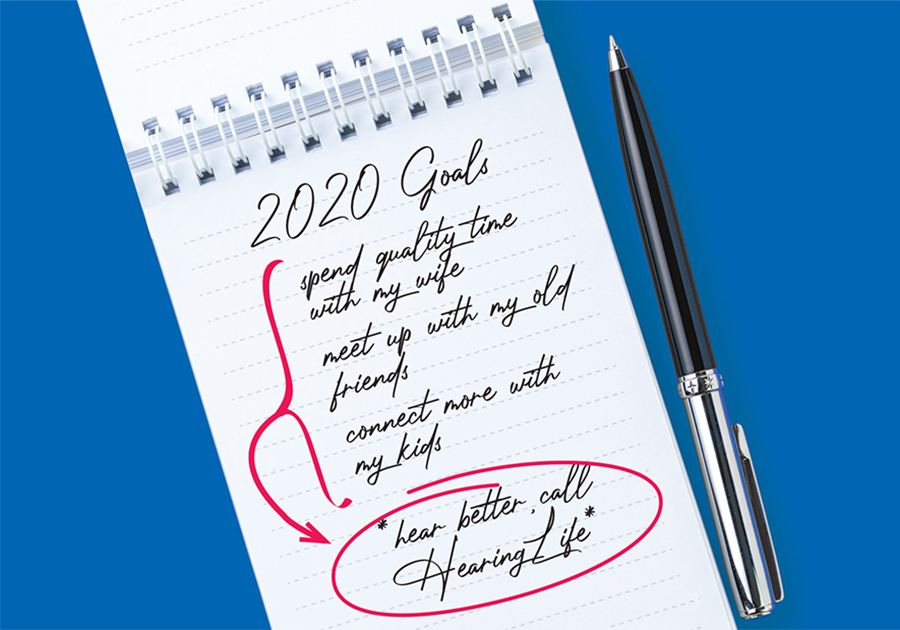 2020 Goals
spend quality time
with my wife
meet up with my old
friends
connect more with
my kids
*hear better, call
HearingLife*